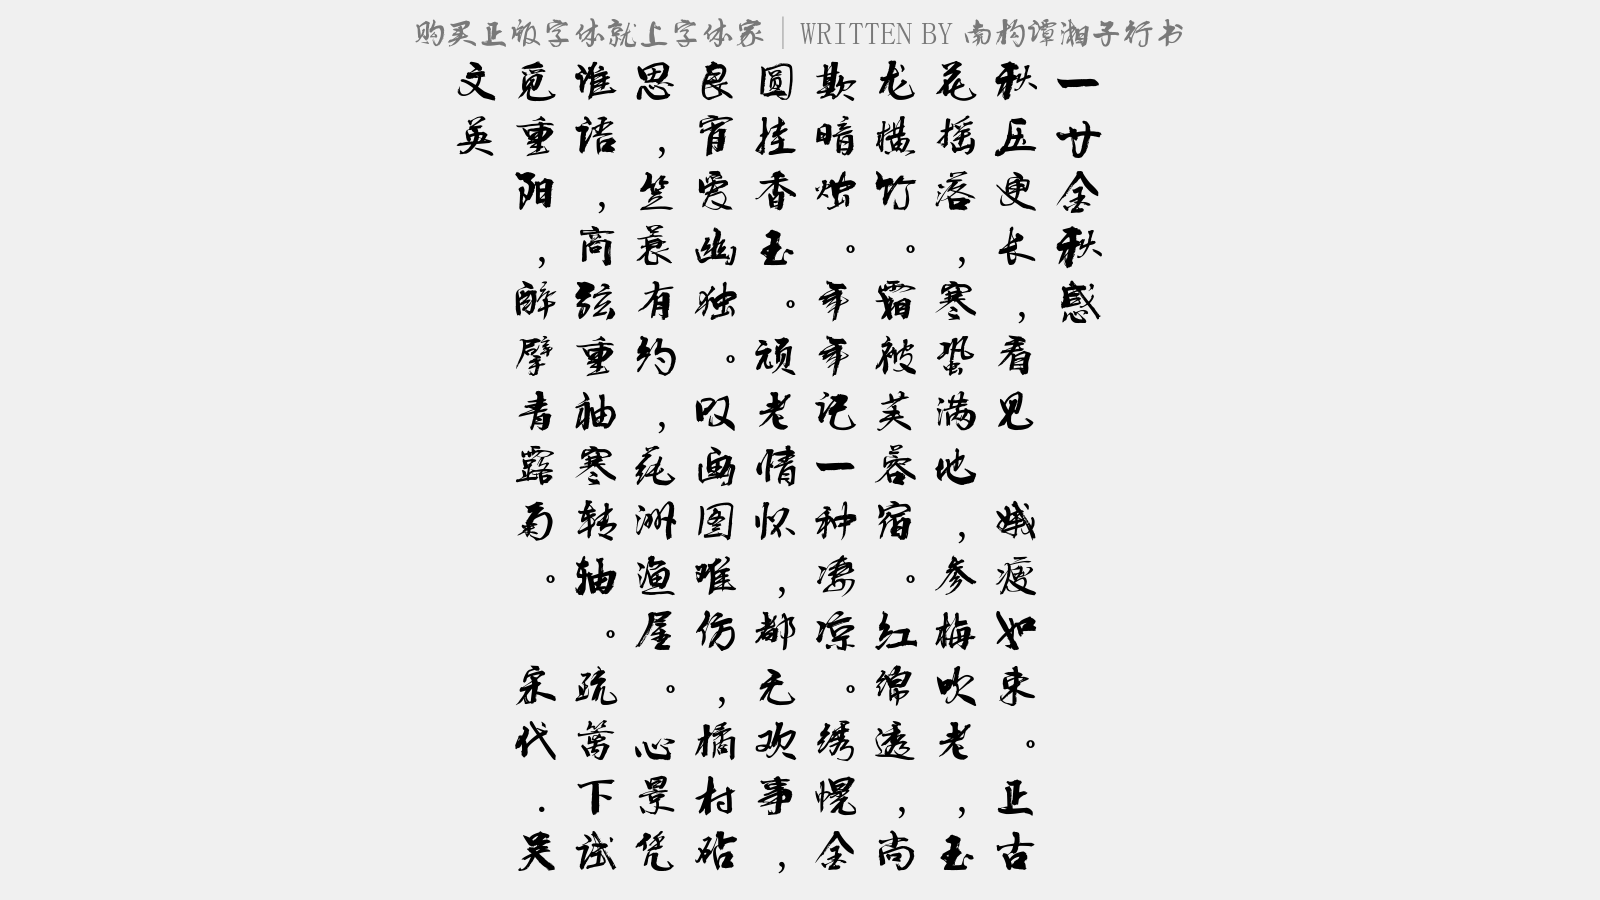 购买正版字体就上字体家 | WRITTEN BY 南构谭湘子行书
一廿金秋感
秋压更长,看见 娥瘦如束。正古
花摇落,寒蛩满地,参梅吹老,玉
龙横竹。霜被芙蓉宿。红绵透,尚
欺暗烛。年年记一种凄凉。绣幌金
圆挂香玉。顽老情怀,都无欢事,
良宵爱幽独。叹画图难仿,橘村砧
思,笠蓑有约,莼洲渔屋。心景凭
谁语,商弦重袖寒转轴。疏篱下试
觅重阳,醉擘青露菊。 宋代.吴
文英